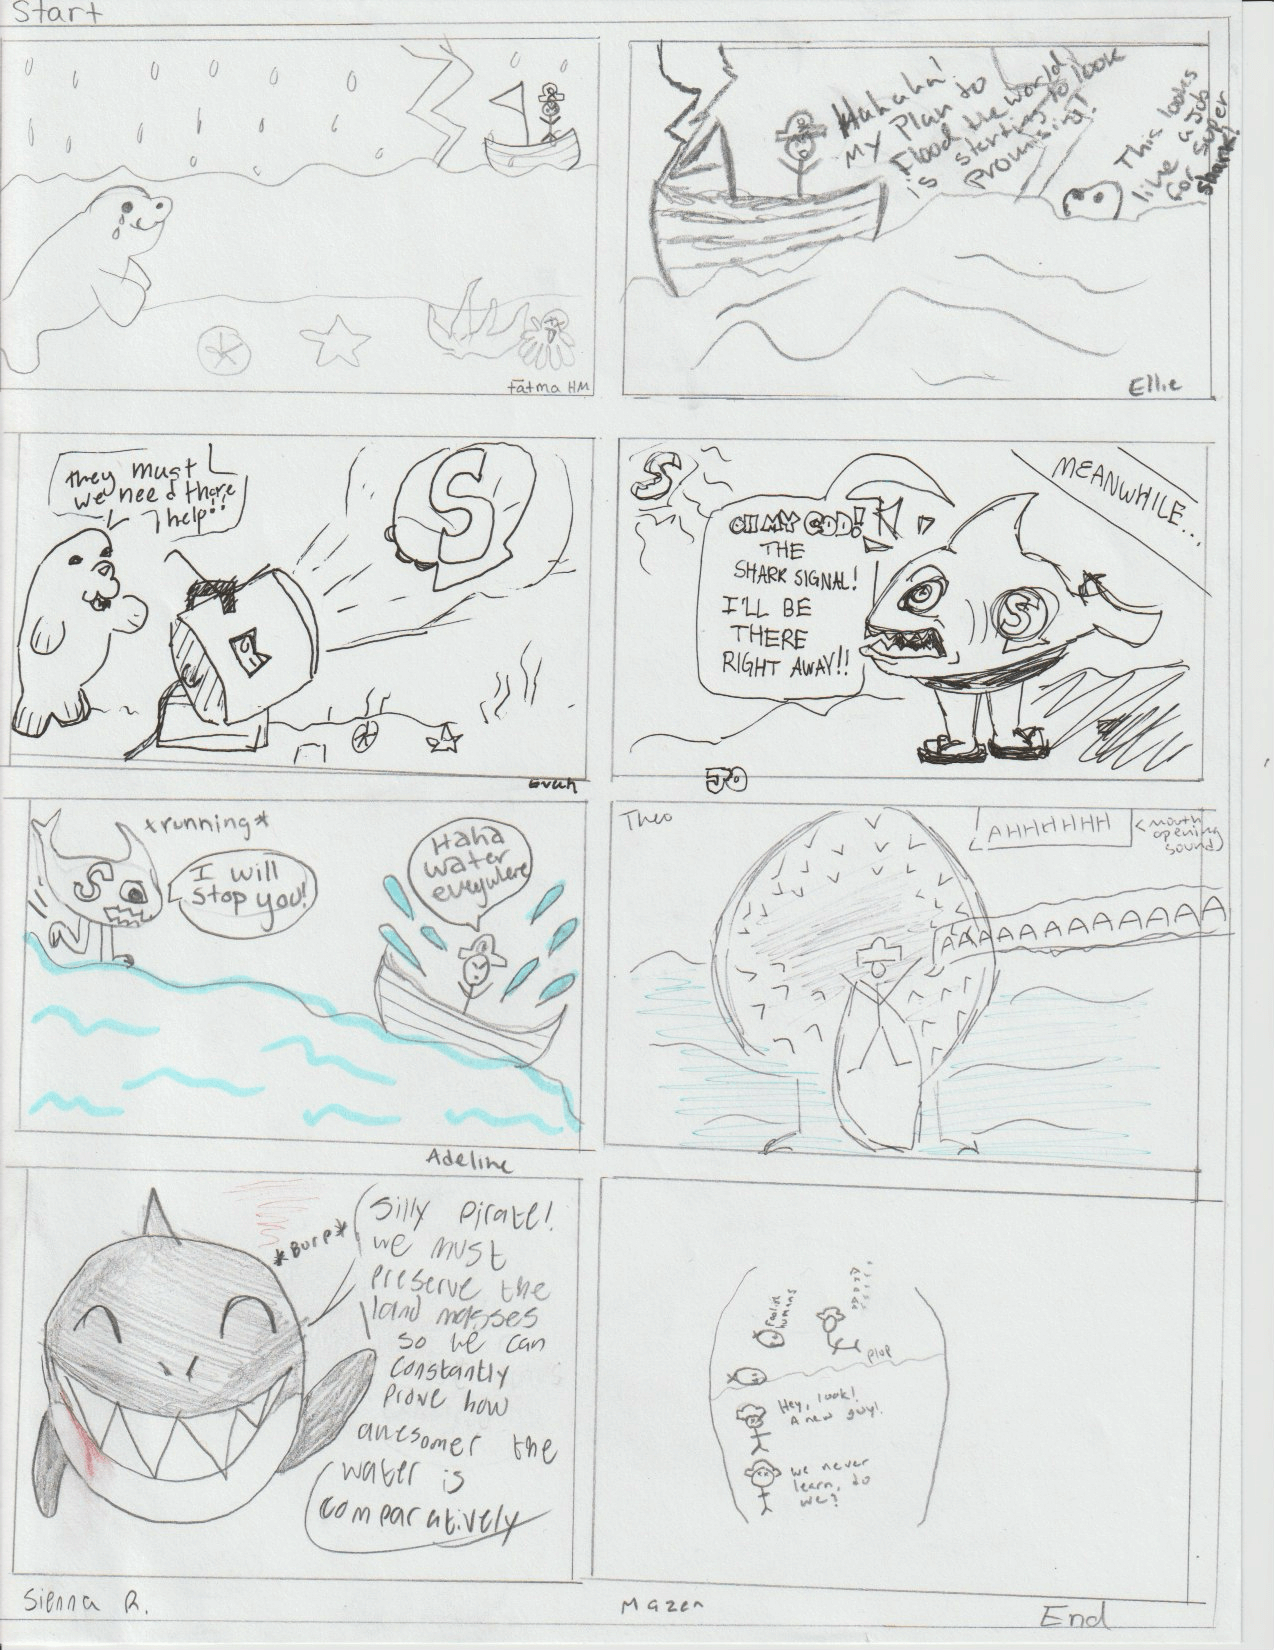 Start
fatma HM
Hahaha!
My Plan to
Flood the world
is starting to look
promising!
This looks
like a Job
for super
shark!
Ellie
they must
we need there
help!!
S
Evan
MEANWHILE...
S
OH MY COD!
THE
SHARK SIGNAL!
I'LL BE
THERE
RIGHT AWAY!!
S
JO
*running*
I will
Stop you!
S
Haha
water
everywhere
Adeline
Theo
AHHHHHH
<mouth
opening
sound)
AAAAAAAAAAAAA
*Burp*
Silly pirate!
we must
preserve the
land masses
so we can
constantly
prove how
awesomer the
water is
comparatively
Sienna R.
Foolish
humans
plop
Hey, look!
A new guy!
we never
learn, do
we?
Mazen
End